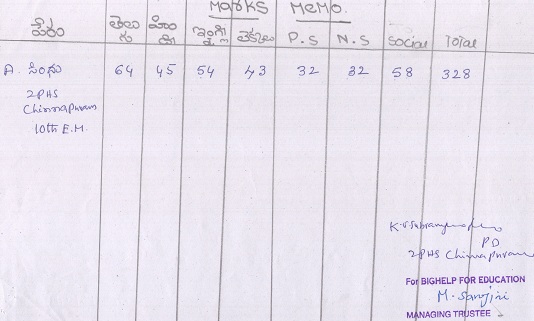 Marks Memo.
పేరు తెలుగు హిందీ ఇంగ్లీ లెక్కలు P.S N.S Social Total
A. సింధు 64 45 54 43 32 32 58 328
ZPHS
Chinnapuram
10th E.M.
PD
ZPHS Chinnapuram
For BIGHELP FOR EDUCATION
M. Sanjini
MANAGING TRUSTEE